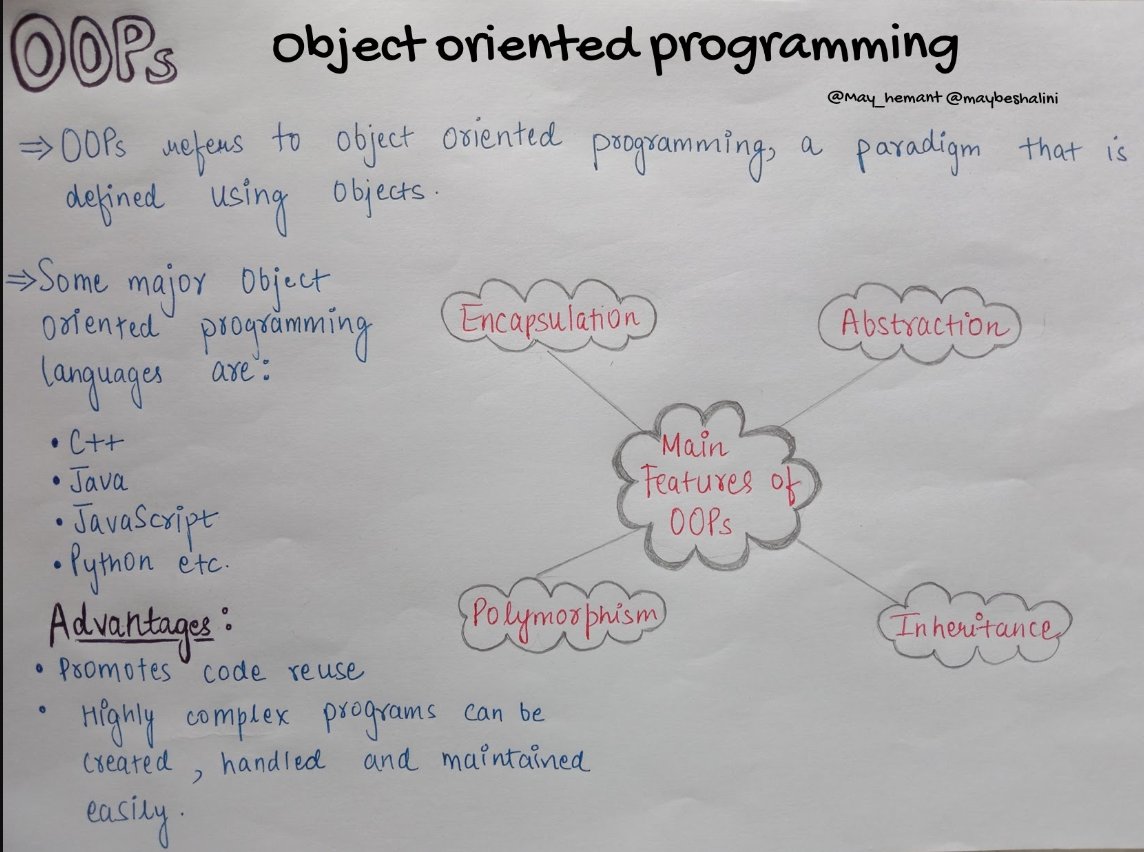 OOPs
Object oriented programming
@May_hemant @maybeshalini
⇒ OOPs refers to object oriented programming, a paradigm that is
defined using objects.
⇒ Some major Object
oriented programming
languages are:
• C++
• Java
• JavaScript
• Python etc.
Advantages:
• Promotes code reuse
• Highly complex programs can be
created, handled and maintained
easily.
Encapsulation
Abstraction
Main
Features of
OOPs
Polymorphism
Inheritance